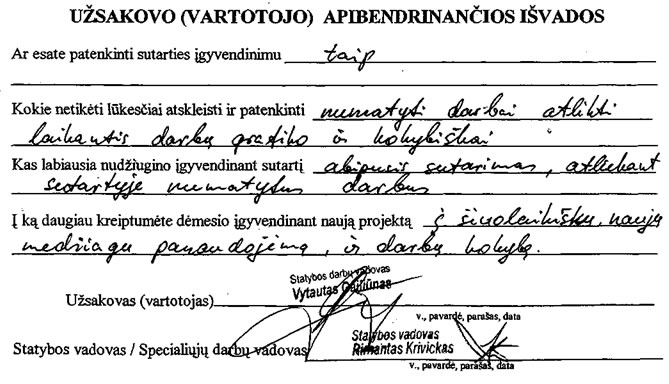 UŽSAKOVO (VARTOTOJO) APIBENDRINANČIOS IŠVADOS
Ar esate patenkinti sutarties įgyvendinimu taip
Kokie netikėti lūkesčiai atskleisti ir patenkinti numatyti darbai atlikti
laikantis darbų grafiko ir kokybiškai
Kas labiausia nudžiugino įgyvendinant sutartį abipusis sutarimas, atliekant
sutartyje numatytus darbus
Į ką daugiau kreiptumėte dėmesio įgyvendinant naują projektą į šiuolaikiškų, naujų
medžiagų panaudojimą, ir darbų kokybę.
Statybos darbų vadovas
Užsakovas (vartotojas) Vytautas
v., pavardė, parašas, data
Statybos vadovas
Statybos vadovas / Specialiųjų darbų vadovas Rimantas Krivickas
v., pavardė, parašas, data